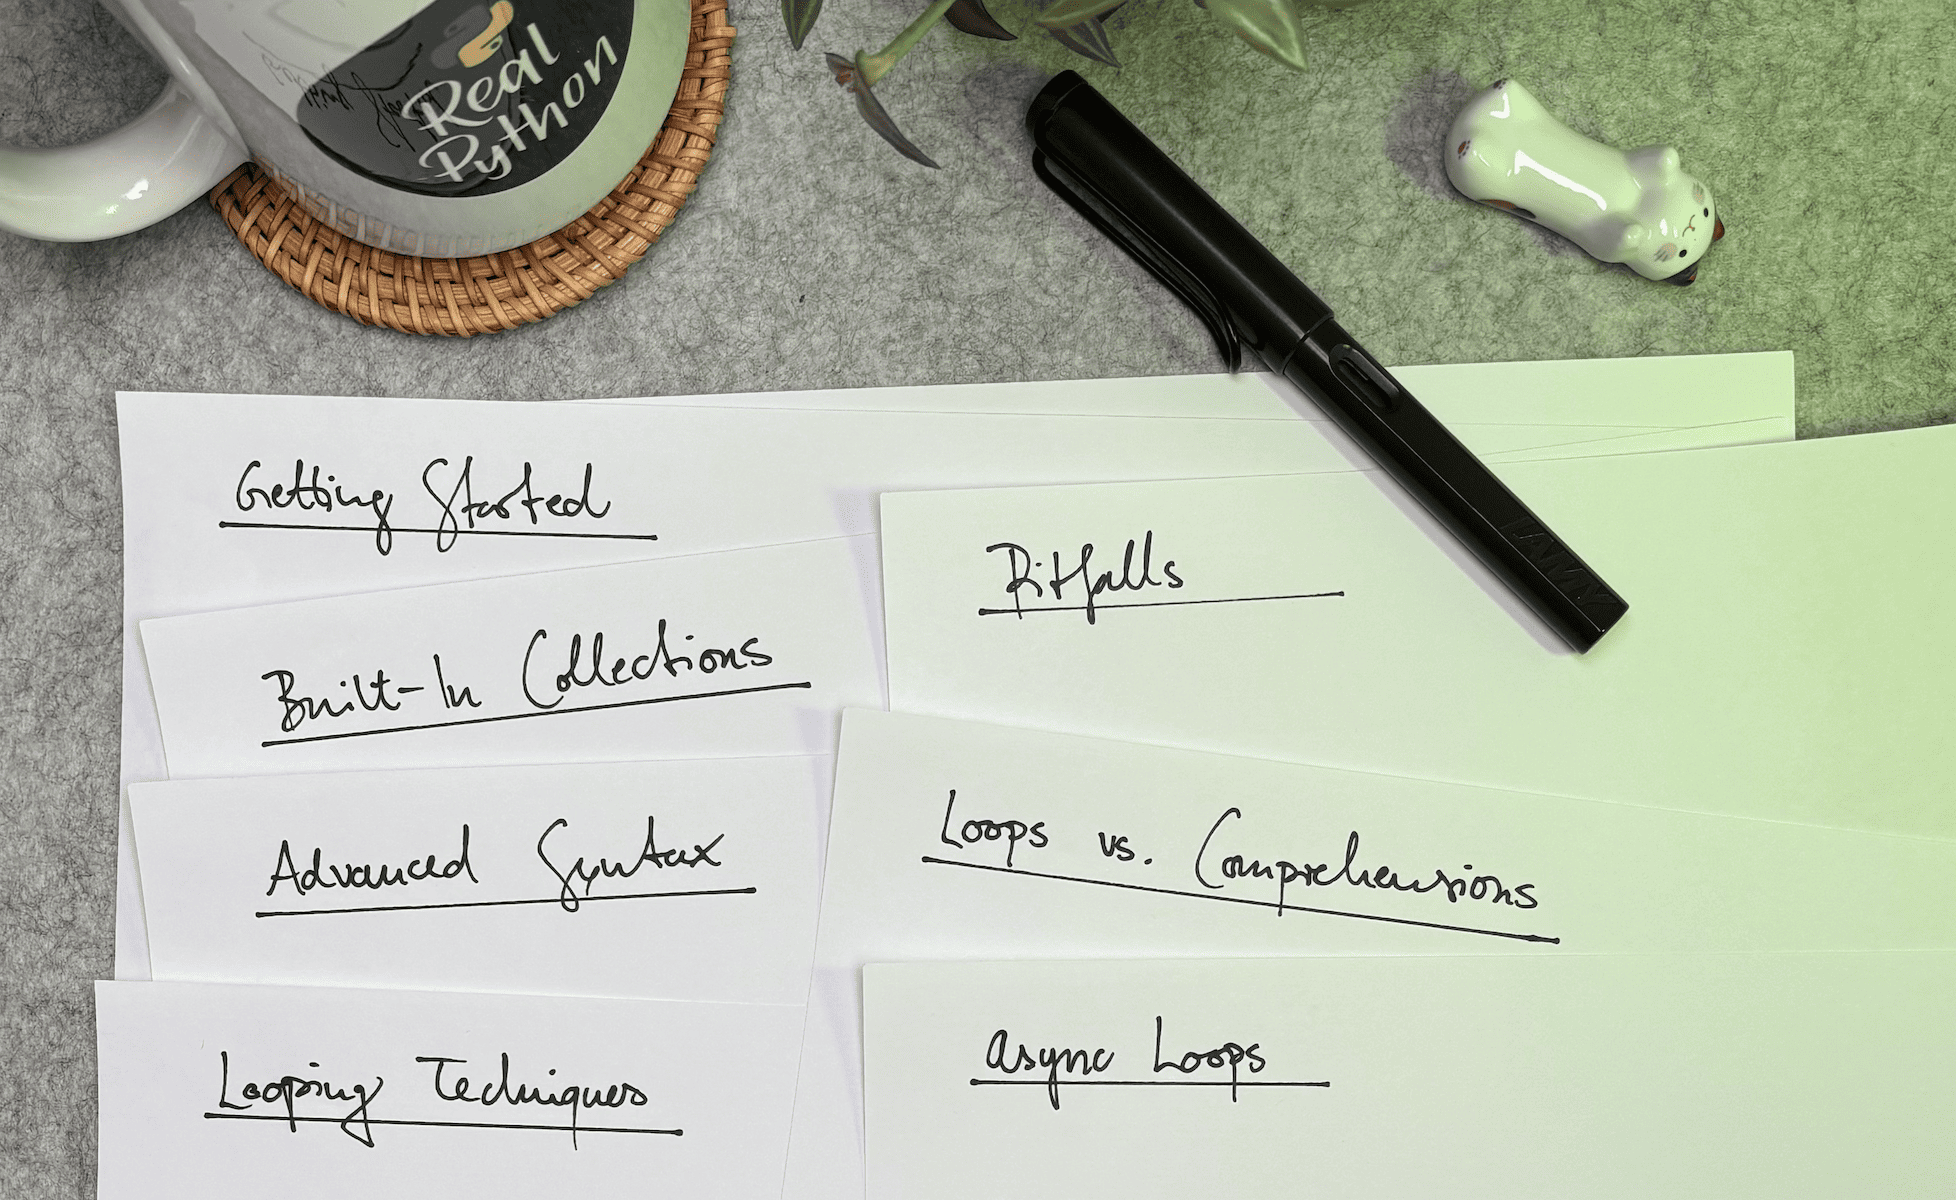 Real
Python
LAMY
Getting Started
Built-In Collections
Advanced Syntax
Looping Techniques
Pitfalls
Loops vs. Comprehensions
Async Loops